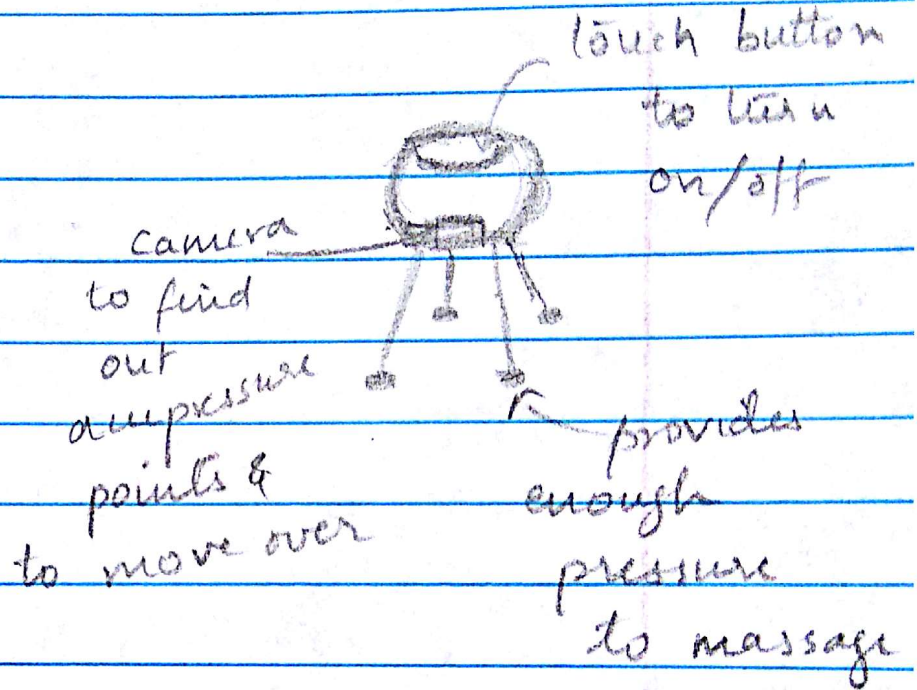 touch button
to turn
on/off
camera
to find
out
acupressure
points &
to move over
provides
enough
pressure
to massage